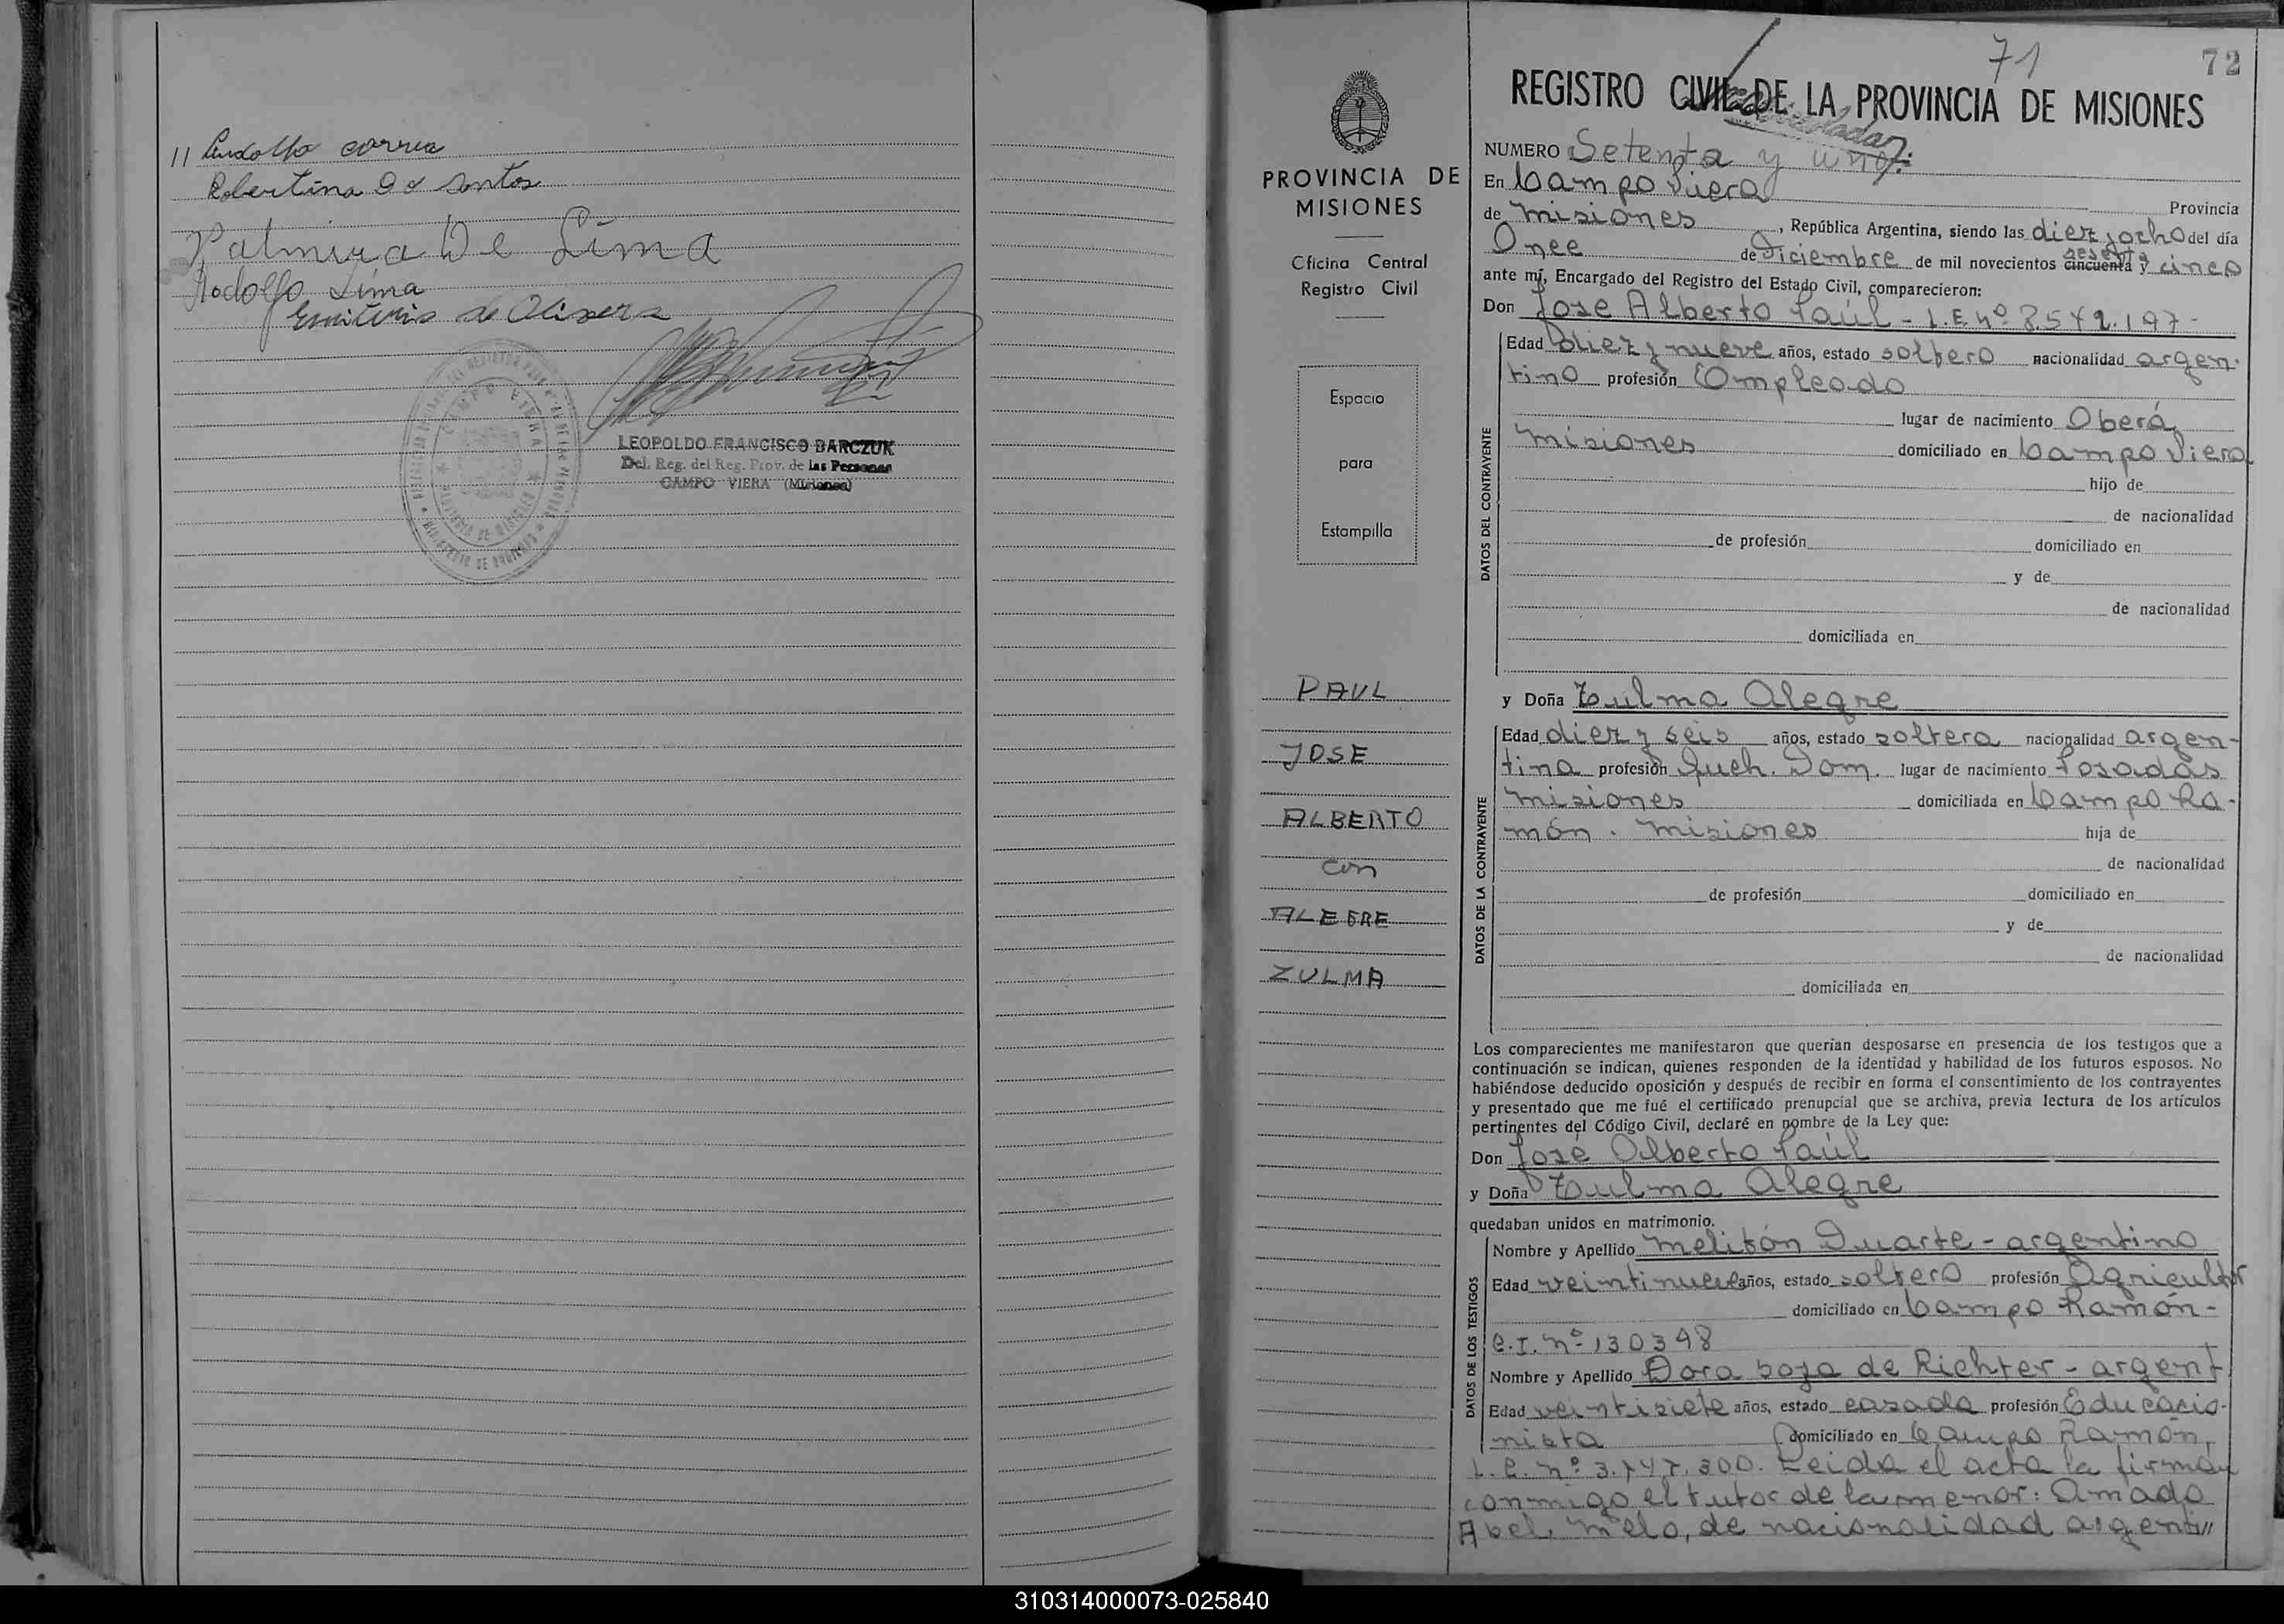 // Rudolfo correa
Robertina Do santos
Palmira De Lima
Rodolfo Lima
de Olivera
LEOPOLDO FRANCISCO BARCZUK
Del. Reg. del Reg. Prov. de las Personas
CAMPO VIERA (Misiones)
71
72
PROVINCIA DE
MISIONES
Oficina Central
Registro Civil
Espacio
para
Estampilla
PAUL
JOSE
ALBERTO
con
ALEGRE
ZULMA
REGISTRO CIVIL DE LA PROVINCIA DE MISIONES
NUMERO Setenta y uno:
En Campo Viera
Provincia
de Misiones, República Argentina, siendo las diez y ocho del día
Once de Diciembre de mil novecientos cincuenta sesenta y cinco
ante mí, Encargado del Registro del Estado Civil, comparecieron:
Don Jose Alberto Paúl - L.E. nº 8.542.197-
DATOS DEL CONTRAYENTE
Edad Diez y nueve años, estado soltero nacionalidad argen-
tino profesión Empleado
lugar de nacimiento Oberá
Misiones domiciliado en Campo Viera
hijo de
de nacionalidad
de profesión domiciliado en
y de
de nacionalidad
domiciliada en
y Doña Zulma Alegre
DATOS DE LA CONTRAYENTE
Edad diez y seis años, estado soltera nacionalidad argen-
tina profesión Queh. Dom. lugar de nacimiento Posadas
Misiones domiciliada en Campo Ra-
món. Misiones hija de
de nacionalidad
de profesión domiciliado en
y de
de nacionalidad
domiciliada en
Los comparecientes me manifestaron que querían desposarse en presencia de los testigos que a
continuación se indican, quienes responden de la identidad y habilidad de los futuros esposos. No
habiéndose deducido oposición y después de recibir en forma el consentimiento de los contrayentes
y presentado que me fué el certificado prenupcial que se archiva, previa lectura de los artículos
pertinentes del Código Civil, declaré en nombre de la Ley que:
Don José Alberto Paúl
y Doña Zulma Alegre
quedaban unidos en matrimonio.
DATOS DE LOS TESTIGOS
Nombre y Apellido Melitón Duarte - argentino
Edad veintinueve años, estado soltero profesión Agricultor
domiciliado en Campo Ramón-
C.I. nº 130398
Nombre y Apellido Dora Soza de Richter - argent
Edad veintisiete años, estado casada profesión Educacio-
nista domiciliado en Campo Ramón,
L.C. nº 3.747.300. Leida el acta la firman
conmigo el tutor de la menor: Amado
Abel Melo, de nacionalidad argenti//
310314000073-025840